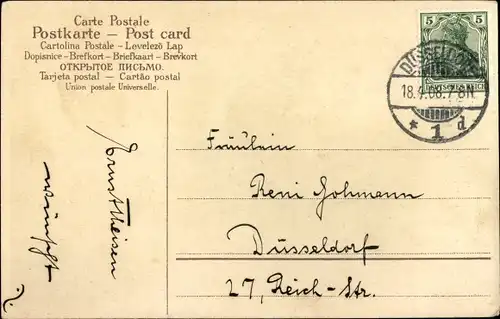 Carte Postale
Postkarte — Post card
Cartolina Postale - Levelező Lap
Dopisnice - Brefkort - Briefkaart - Brevkort
ОТКРЫТОЕ ПИСЬМО.
Tarjeta postal — Cartão postal
Union postale Universelle.
5 5
DEUTSCHES REICH
DÜSSELDORF
18.4.08.7-8N.
* 1 d
Fräulein
Reni Hohmann
Düsseldorf
27, Reich-Str.
Ernst Theisen
wünscht